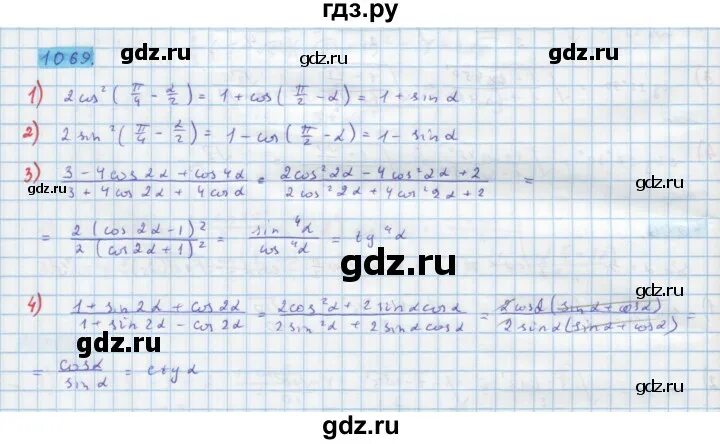 гдз.ру
1069.
gdz.ru gdz.ru
1) 2cos²(π/4 - α/2) = 1 + cos(π/2 - α) = 1 + sin α
2) 2 sin²(π/4 - α/2) = 1 - cos(π/2 - α) = 1 - sin α
3) (3 - 4cos 2α + cos 4α)/(3 + 4 cos 2α + 4 cos α) = (2cos² 2α - 4 cos² 2α + 2)/(2 cos² 2α + 4 cos² 2α + 2) =
gdz.ru gdz.ru
= 2 (cos 2α - 1)²/2 (cos 2α + 1)² = sin⁴α/cos⁴α = tg⁴α
gdz.ru
4) (1 + sin 2α + cos 2α)/(1 + sin 2α - cos 2α) = (2cos²α + 2 sin α cos α)/(2 sin²α + 2 sin α cos α) = 2cos α (sin α + cos α)/2 sin α (sin α + cos α) =
gdz.ru gdz.ru
= cos α/sin α = ctg α
gdz.ru